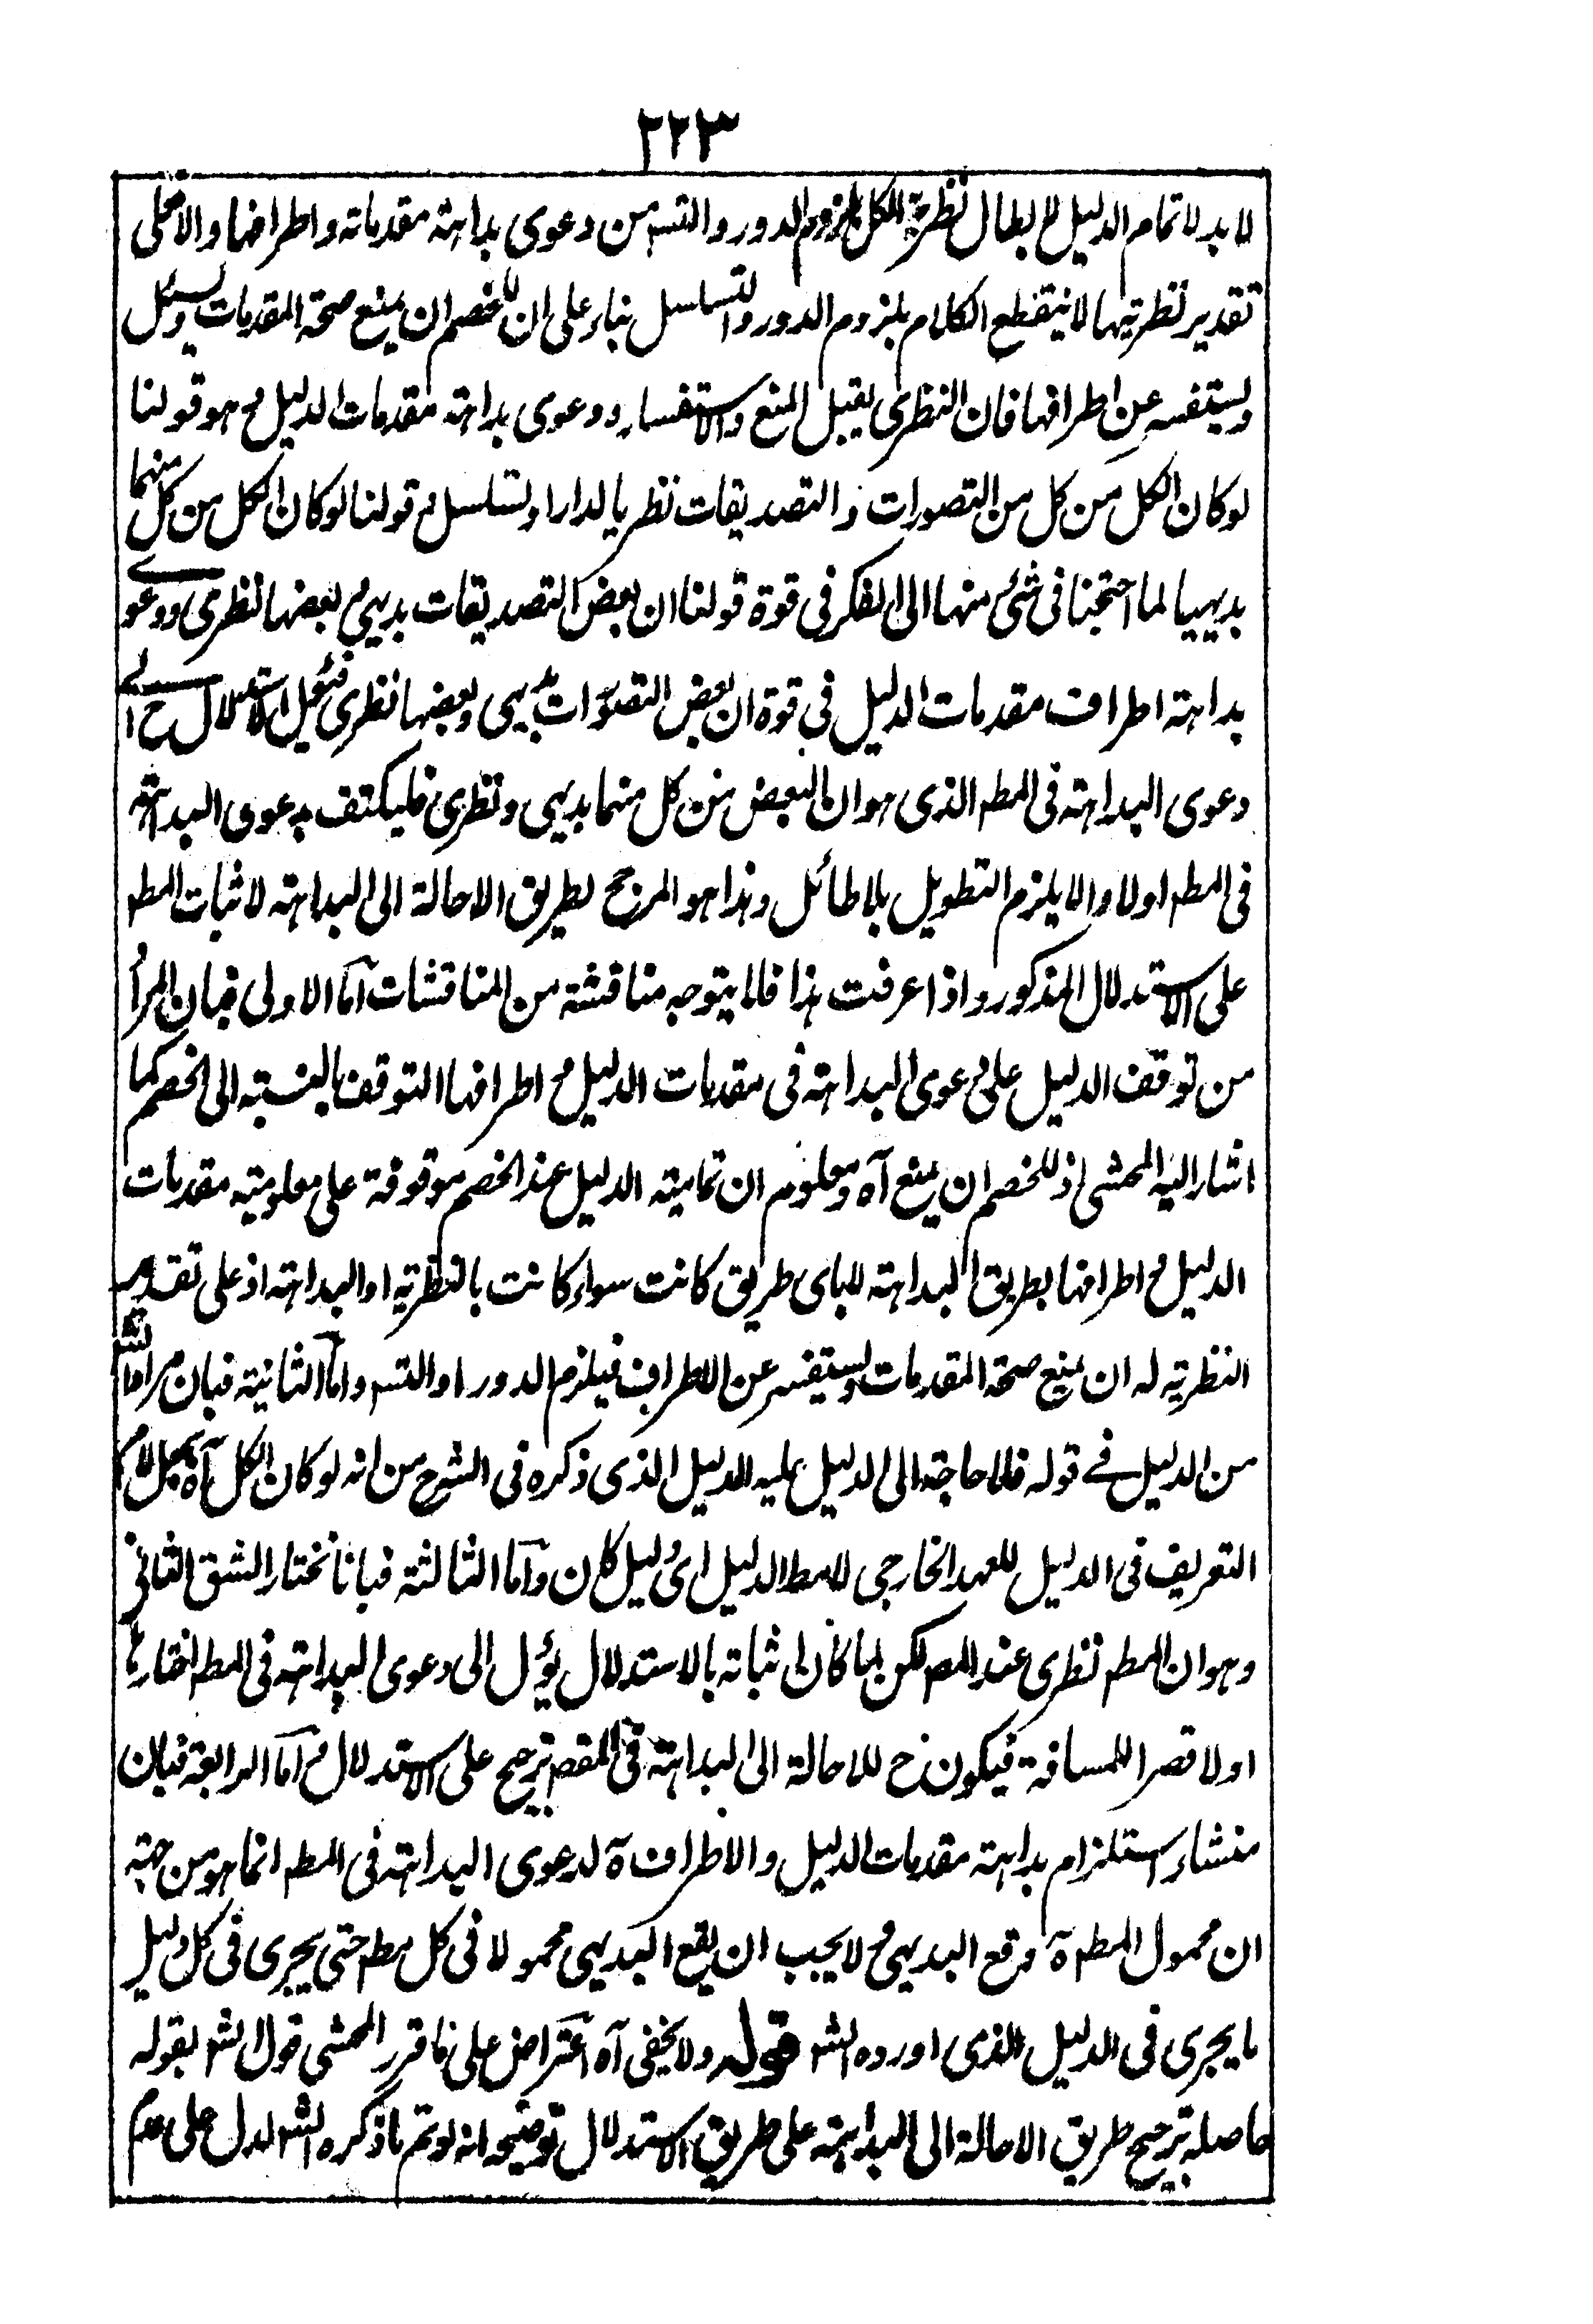 ٢٢٣
لا بد لاتمام الدليل لابطال نظرية الكل بلزوم الدور والتسـ من دعوى بداهة مقدماته واطرافها والا فعلى
تقدير نظريتها لا ينقطع الكلام بلزوم الدور والتسلسل بناء على ان للخصم ان يمنع صحة المقدمات ويسئل
ويستفسر عن اطرافها فان النظرى يقبل المنع والاستفسار ودعوى بداهة مقدمات الدليل وهو قولنا
لو كان الكل من كل من التصورات والتصديقات نظريا لدار او تسلسل وقولنا لو كان الكل من كل منهما
بديهيا لما احتجنا فى شئ منها الى الفكر فى قوة قولنا ان بعض التصديقات بديهى وبعضها نظرى ودعوے
بداهة اطراف مقدمات الدليل فى قوة ان بعض التصورات بديهى وبعضها نظرى فيئول الاستدلال ح الے
دعوى البداهة فى المطـ الذى هو ان البعض من كل منهما بديهى ونظرى فليكتف بدعوى البداهة
فى المطـ اولا والا يلزم التطويل بلا طائل وهذا هو المرجح لطريق الاحالة الى البداهة لاثبات المطـ
على الاستدلال المذكور واذا عرفت هذا فلا يتوجه مناقشة من المناقشات اما الاولى فبان المراد
من توقف الدليل على دعوى البداهة فى مقدمات الدليل و اطرافها التوقف بالنسبة الى الخصم كما
اشار اليه المحشى اذ للخصم ان يمنع آه ومعلوم ان تمامية الدليل عند الخصم موقوفة على معلومية مقدمات
الدليل و اطرافها بطريق البداهة لا باى طريق كانت سواء كانت بالنظرية او البداهة اذ على تقدير
النظرية له ان يمنع صحة المقدمات ويستفسر عن الاطراف فيلزم الدور او التسـ واما الثانية فبان مراد الشـ
من الدليل فے قوله فلا حاجة الى الدليل عليه الدليل الذى ذكره فى الشرح من انه لو كان الكل آه بجعل لام
التعريف فى الدليل للعهد الخارجى لا مطـ الدليل اى دليل كان واما الثالثة فبانا نختار الشق الثانى
وهو ان المطـ نظرى عند المصـ لكن لما كان اثباته بالاستدلال يؤل الى دعوى البداهة فى المطـ اختارها
اولا قصرا للمسافة فيكون ح للاحالة الى البداهة فى المقصـ ترجيح على الاستدلال واما الرابعة فبان
منشاء استلزام بداهة مقدمات الدليل والاطراف آه لدعوى البداهة فى المطـ انما هو من جهة
ان محمول المطـ آه وقع البديهى ولا يجب ان يقع البديهى محمولا فى كل مطـ حتى يجرى فى كل دليل
ما يجرى فى الدليل الذى اورده الشـ قوله ولا يخفى آه اعتراض على ما قرر المحشى قول الشـ بقوله
حاصله ترجيح طريق الاحالة الى البداهة على طريق الاستدلال توضيحه انه لو تم ما ذكره الشـ لدل على عدم